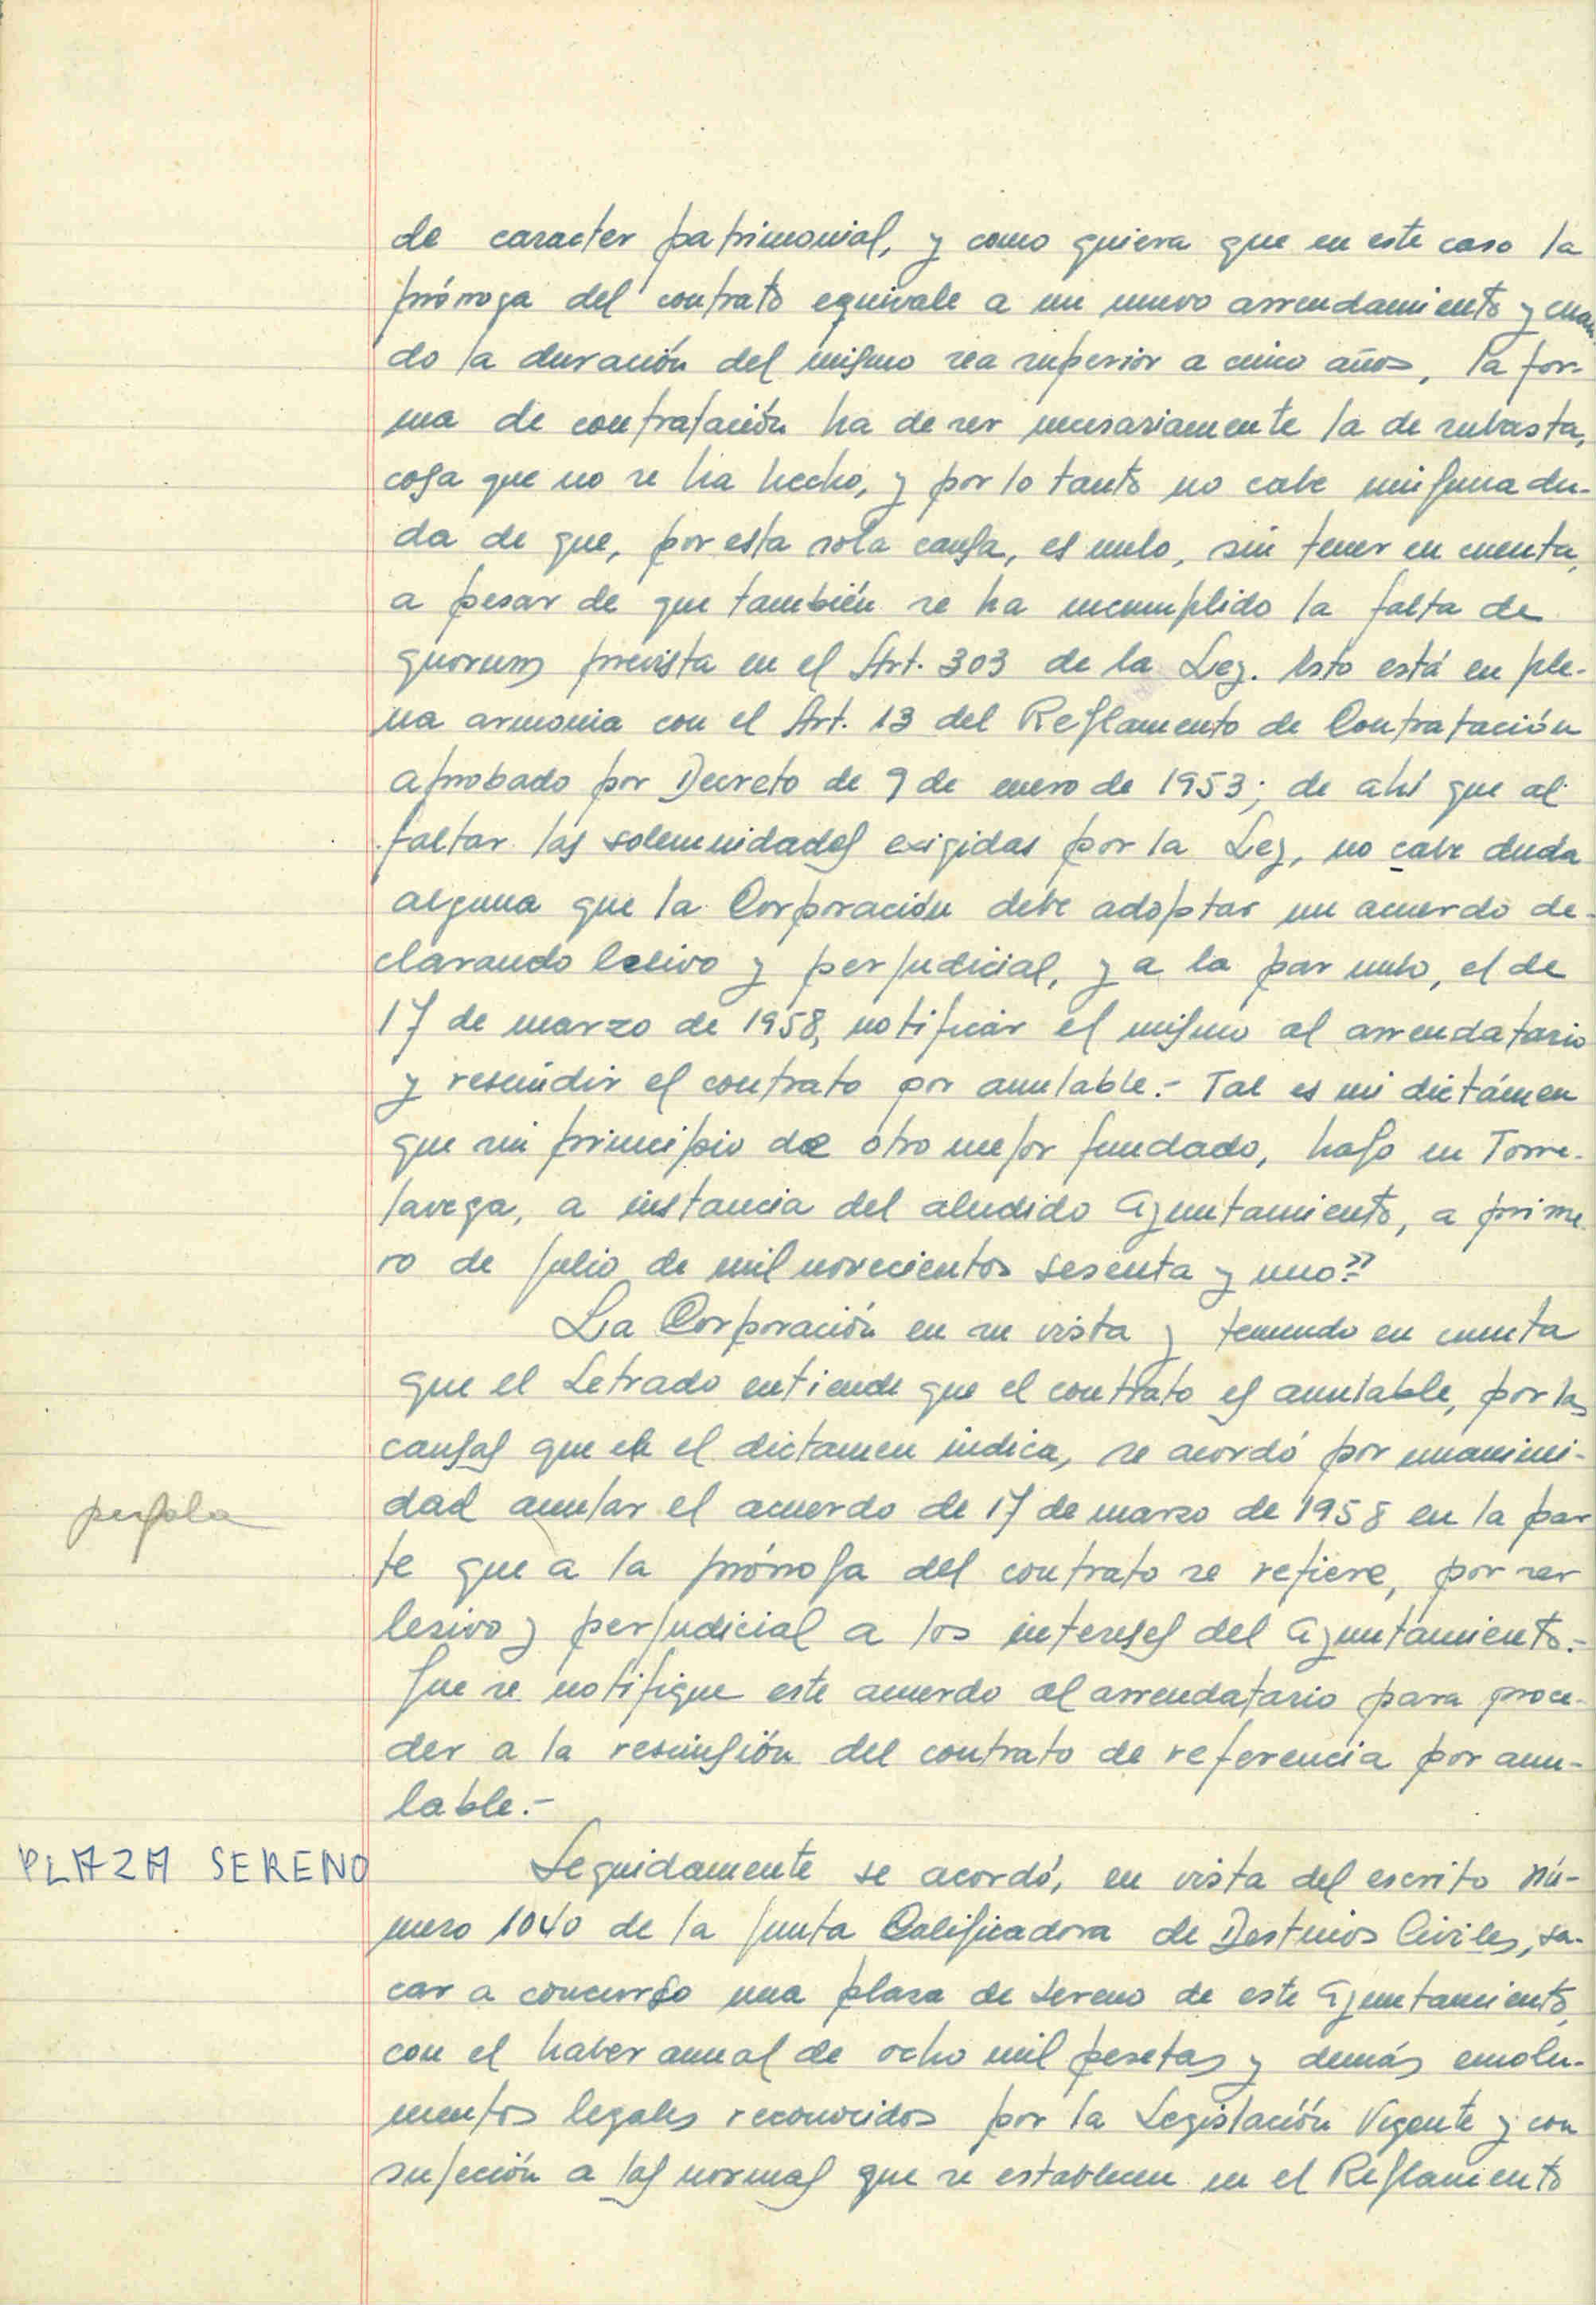 de caracter patrimonial, y como quiera que en este caso la
prórroga del contrato equivale a un nuevo arrendamiento y cuan
do la duración del mismo sea superior a cinco años, la for-
ma de contratación ha de ser necesariamente la de subasta,
cosa que no se ha hecho, y por lo tanto no cabe ninguna du-
da de que, por esta sola causa, es nulo, sin tener en cuenta,
a pesar de que también se ha incumplido la falta de
quorum prevista en el Art. 303 de la Ley. Esto está en ple-
na armonia con el Art. 13 del Reglamento de Contratación
aprobado por Decreto de 9 de enero de 1953; de ahí que al
faltar las solemnidades exigidas por la Ley, no cabe duda
alguna que la Corporación debe adoptar un acuerdo de-
clarando lesivo y perjudicial, y a la par nulo, el de
17 de marzo de 1958, notificar el mismo al arrendatario
y rescindir el contrato por anulable.- Tal es mi dictámen
que sin principio de otro mejor fundado, hago en Torre-
lavega, a instancia del aludido Ayuntamiento, a prime
ro de julio de mil novecientos sesenta y uno".-
La Corporación en su vista y teniendo en cuenta
que el Letrado entiende que el contrato es anulable, por las
causas que en el dictamen indica, se acordó por unanimi-
pergola
dad anular el acuerdo de 17 de marzo de 1958 en la par
te que a la prórroga del contrato se refiere, por ser
lesivo y perjudicial a los intereses del Ayuntamiento.-
Que se notifique este acuerdo al arrendatario para proce-
der a la rescisión del contrato de referencia por anu-
lable.-
PLAZA SERENO
Seguidamente se acordó, en vista del escrito nú-
mero 1040 de la Junta Calificadora de Destinos Civiles, sa-
car a concurso una plaza de sereno de este Ayuntamiento,
con el haber anual de ocho mil pesetas y demás emolu-
mentos legales reconocidos por la Legislación Vigente y con
sujeción a las normas que se establecen en el Reglamento